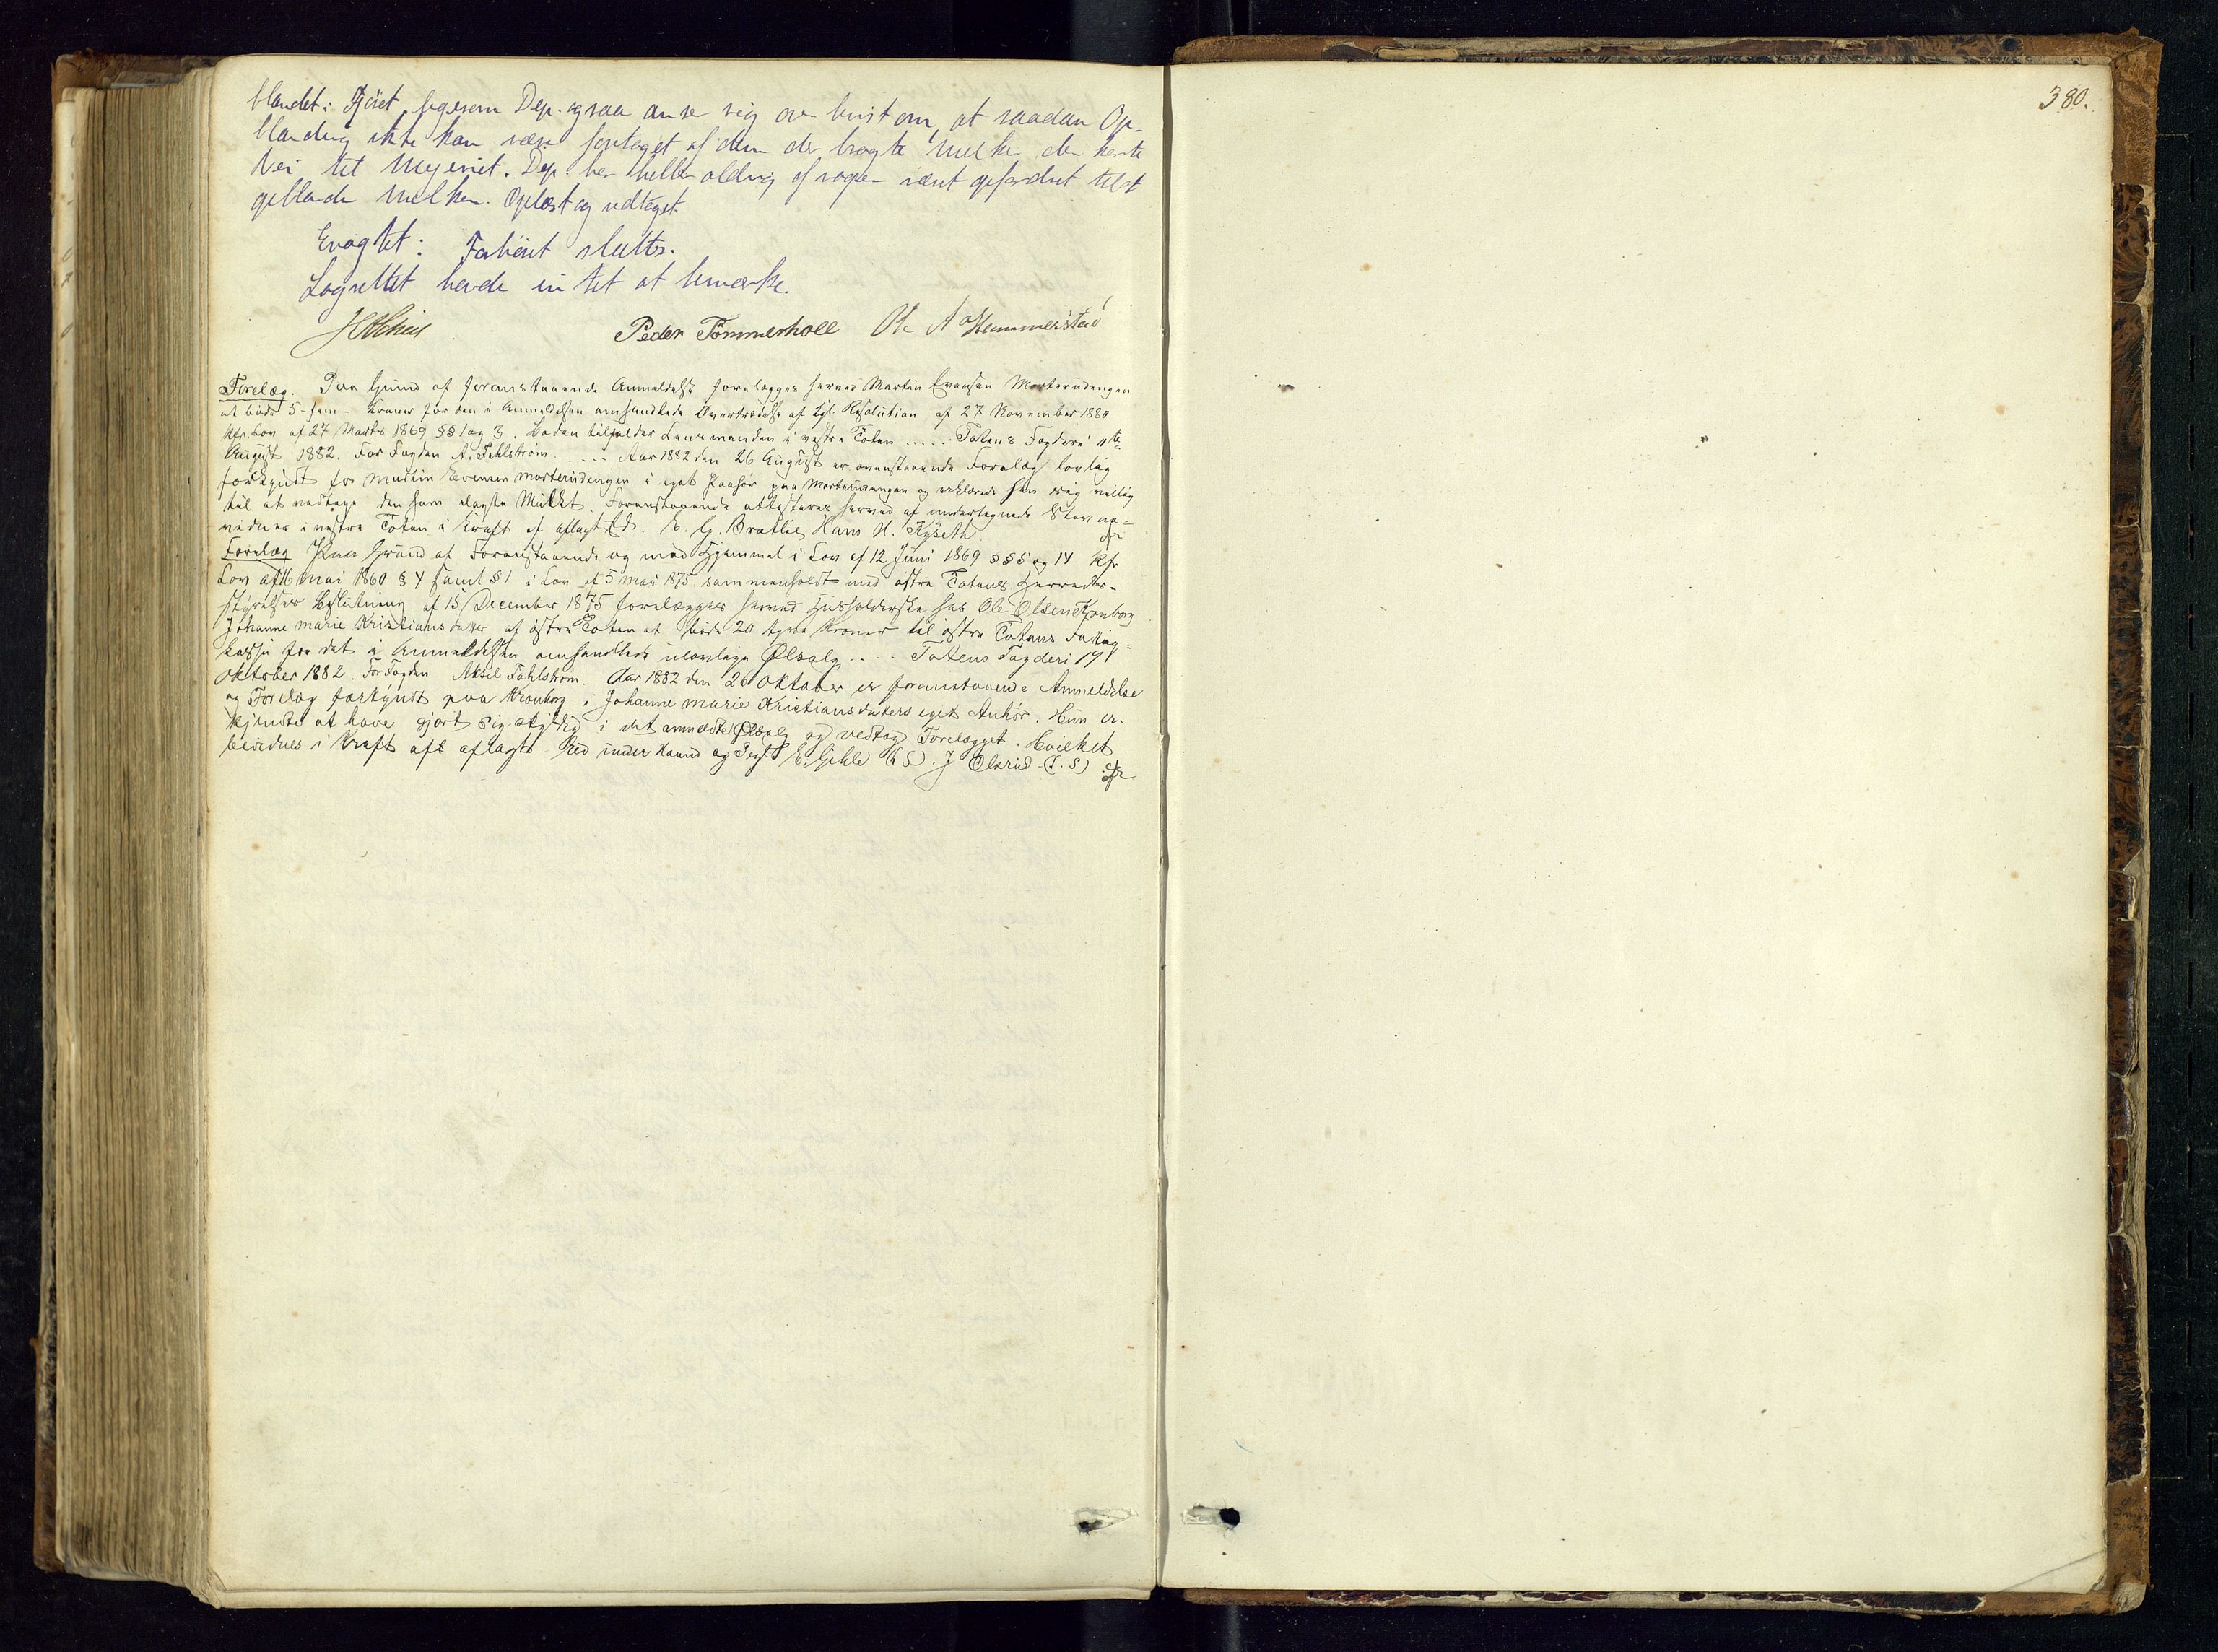 blandet i Fjøset, ligesom Dep. ogsaa anser sig overbevist om, at saadan Op-
blanding ikke kan være foretaget af dem der bragte Melken den korte
Vei til Meyeriet. Dep. har heller aldrig af nogen været opfordret til at
opblande Melken. Oplæst og vedtaget.
Eragtet: Forhöret sluttes.
Lagrettet havde intet at bemærke.
Peder Tömmerholl Ole A Hemmerstad
Forelæg. Paa Grund af foranstaaende Anmeldelse forelægges herved Martin Evensen Morterudengen
at bøde 5 - fem - Kroner for den i Anmeldelsen omhandlede Overtrædelse af Kgl. Resolution af 27 November 1880
kfr. Lov af 27 Marts 1869 §§ 1 og 3. Boden tilfalder Lensmanden i vestre Toten ..... Totens Fogderi
August 1882. For Fogden A. Fahlstrøm ..... Aar 1882 den 26 August er ovenstaaende Forelæg lovlig
forkyndt for Martin Evensen Morterudengen i eget Paahør paa Morterudengen og erklærede han sig villig
til at vedtage den ham ilagte Mulkt. Foranstaaende attesteres herved af undertegnede Stevne-
vidner i vestre Toten i Kraft af aflagt Ed. E. G. Bratlie, Hans H. Kyseth
Forelæg Paa Grund af Foranstaaende og med Hjemmel i Lov af 12 Juni 1869 §§ 5 og 14 kfr
Lov af 16 mai 1860 § 4 samt § 1 i Lov af 5 mai 1875 sammenholdt med østre Totens Herreds-
styrelses Beslutning af 15 December 1875 forelægges herved Husholderske hos Ole Olsen Kronborg
Johanne marie Kristiansdatter af østre Toten at bøde 20 tyve Kroner til østre Totens Fattig-
kasse for det i Anmeldelsen omhandlede ulovlige Ølsalg .... Totens Fogderi 19
oktober 1882. For Fogden Aksel Fahlstrøm. Aar 1882 den 26 Oktober er foranstaaende Anmeldelse
og Forelæg forkyndt paa Kronborg i Johanne marie Kristiansdatters eget Anhør. Hun er-
kjendte at have gjort sig skyldig i det anmeldte Ølsalg og vedtog Forelægget. Hvilket
bevidnes i Kraft af aflagt Eed under Haand og Segl E. Gihle (L S). J Olsrud (L. S)
380.